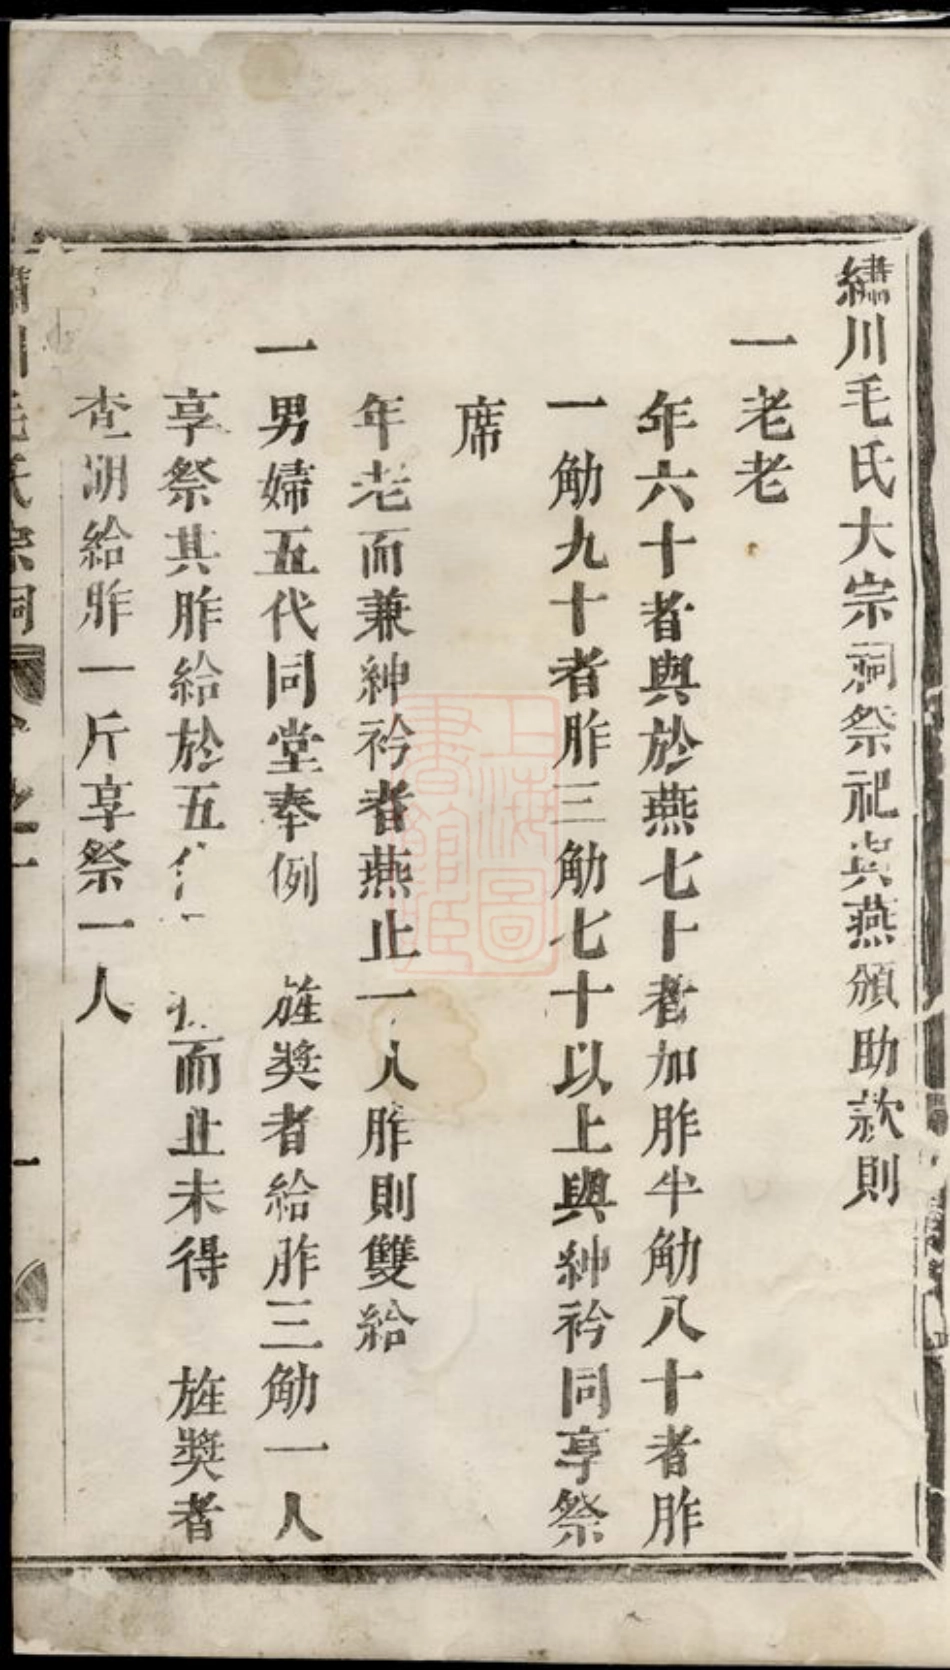 繡川毛氏大宗祠祭祀與燕頒助款則
一老老
年六十者與於燕七十者加胙半觔八十者胙
一觔九十者胙三觔七十以上與紳衿同享祭
席
年老而兼紳衿者燕止一人胙則雙給
一男婦五代同堂奉例 旌獎者給胙三觔一人
享祭其胙給於五 而止未得 旌獎者
查明給胙一斤享祭一人
毛氏宗祠
一
上海圖書館藏